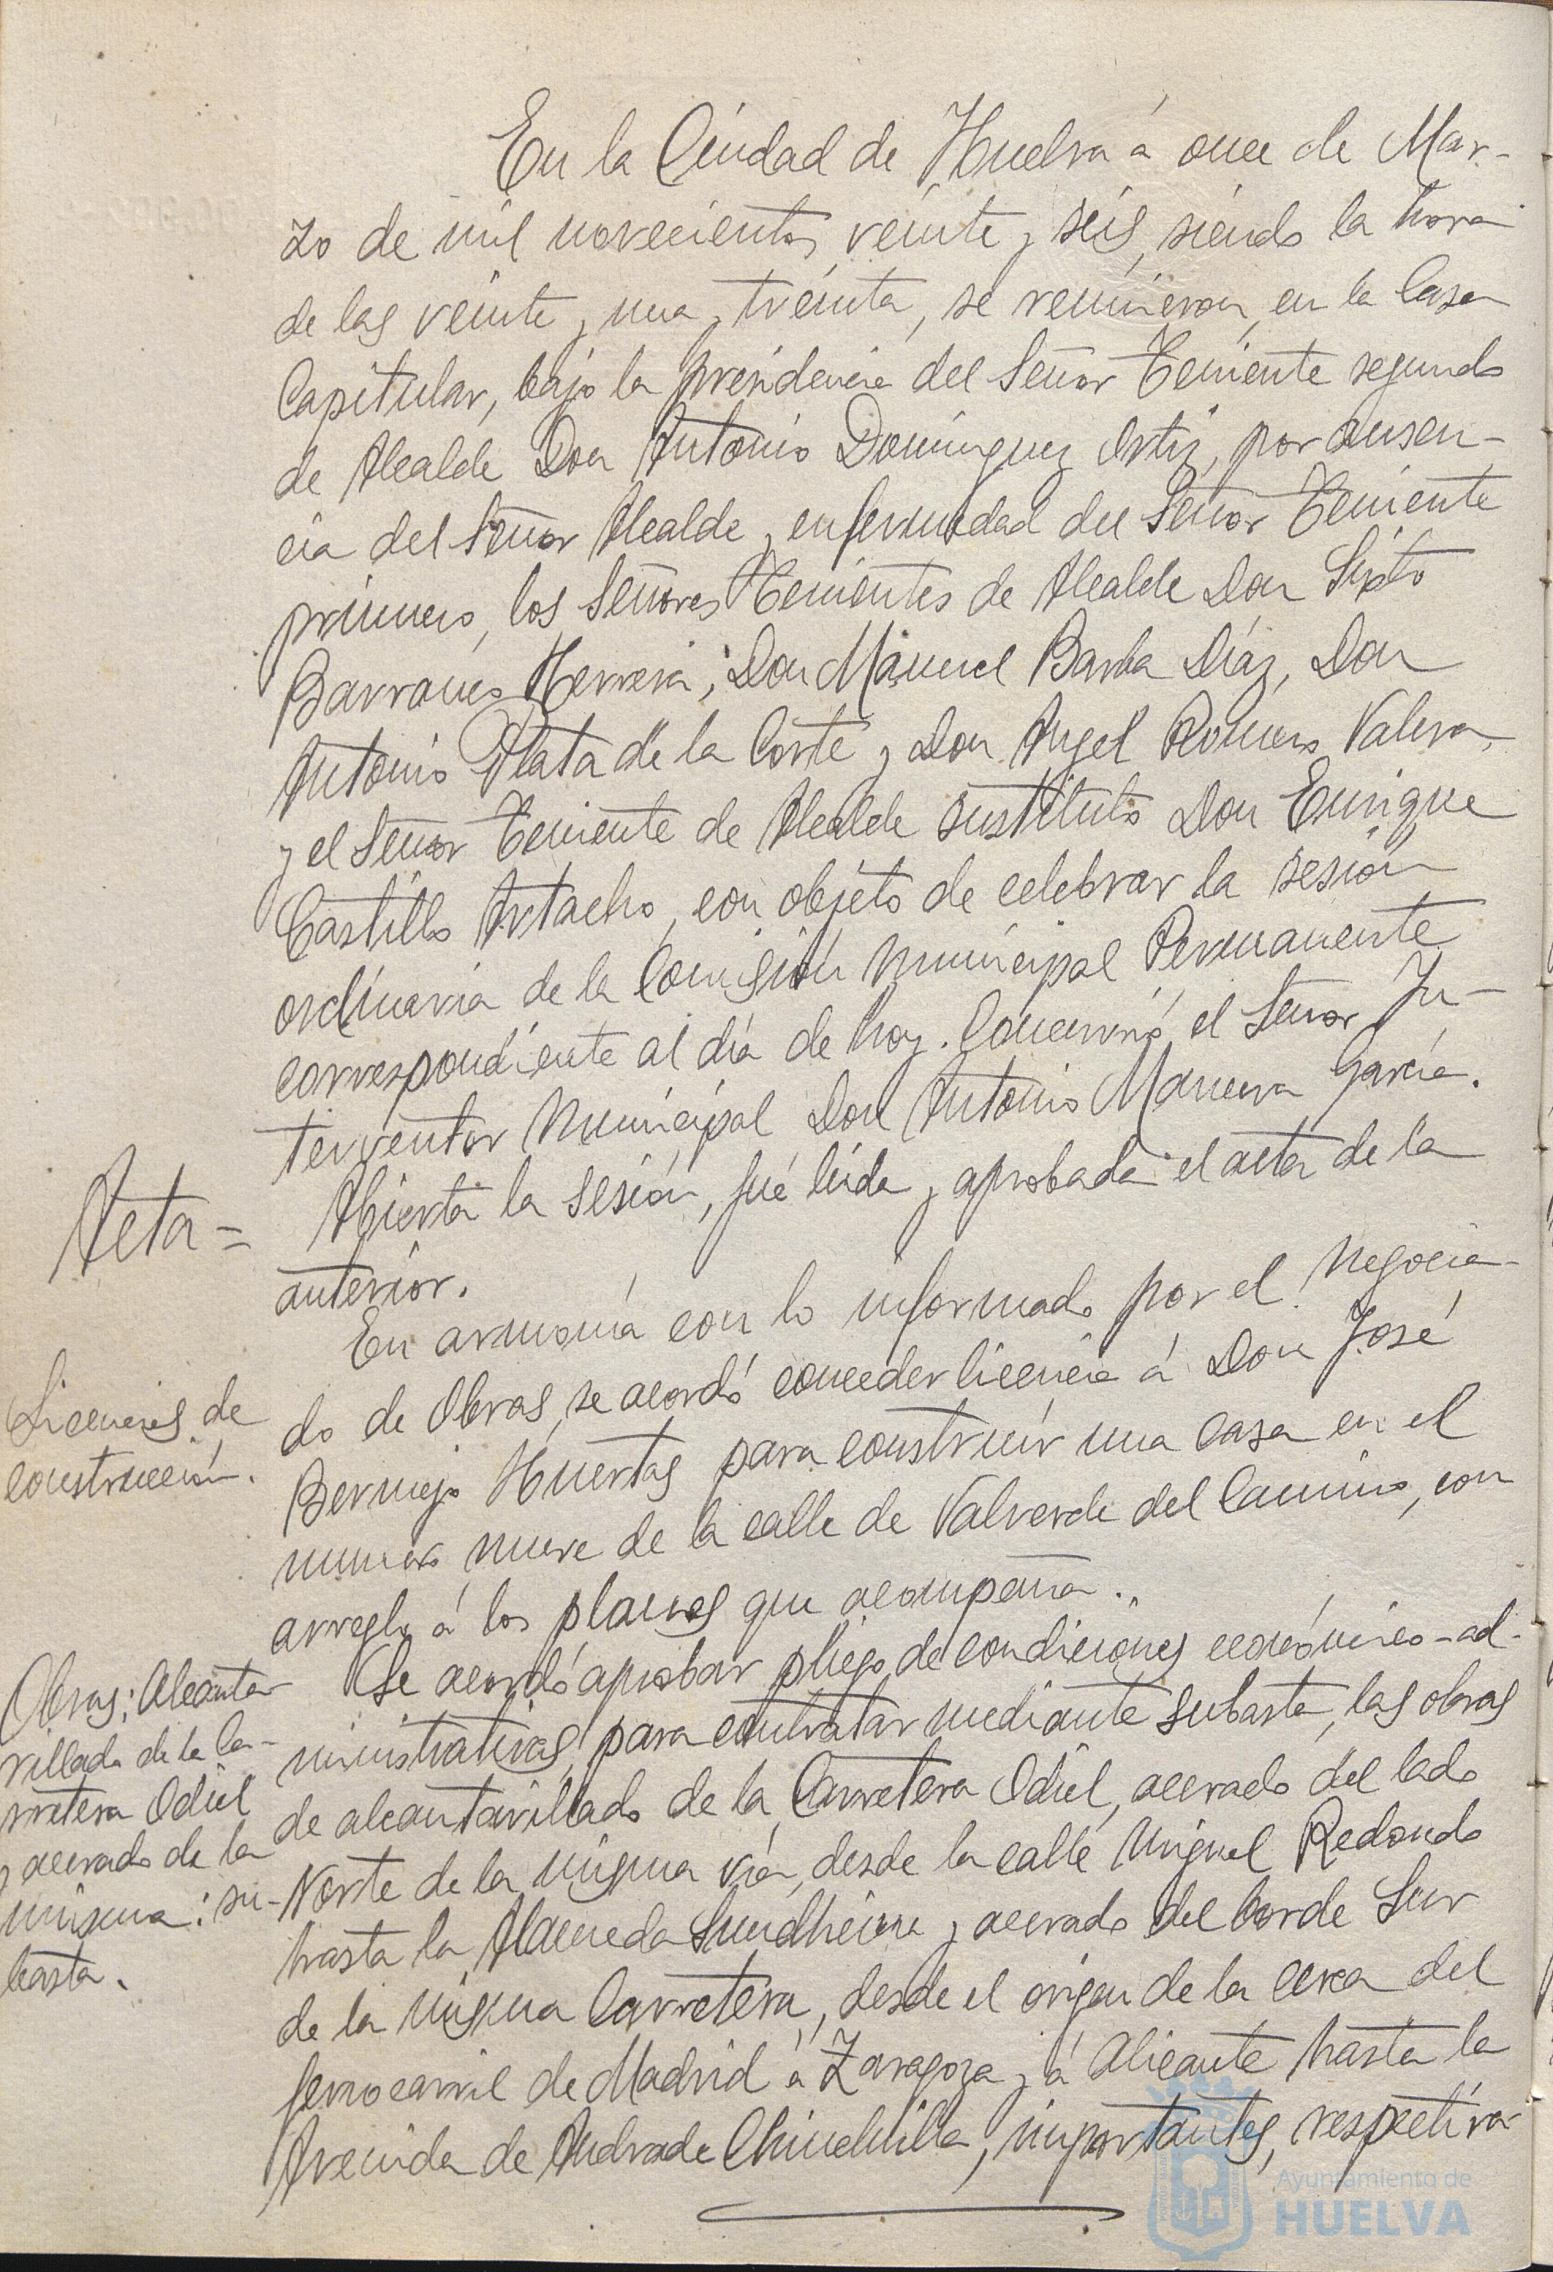 En la Ciudad de Huelva á once de Mar-
zo de mil novecientos veinte y seis, siendo la hora
de las veinte y una y treinta, se reunieron, en la Casa
Capitular, bajo la presidencia del Señor Teniente segundo
de Alcalde Don Antonio Domínguez Ortiz, por ausen-
cia del Señor Alcalde y enfermedad del Señor Teniente
primero, los Señores Tenientes de Alcalde Don Sixto
Barranco Herrera, Don Manuel Barba Díaz, Don
Antonio Plata de la Corte y Don Angel Romero Valera,
y el Señor Teniente de Alcalde sustituto Don Enrique
Castillo Artacho, con objeto de celebrar la sesión
ordinaria de la Comisión Municipal Permanente
correspondiente al día de hoy. Concurrió el Señor In-
terventor Municipal Don Antonio García.
Acta = Abierta la sesión, fué leída y aprobada el acta de la
anterior.
En armonía con lo informado por el Negocia-
Licencias de do de Obras, se acordó conceder licencia á Don José
construcción. Bermejo Huertas para construír una casa en el
numero nueve de la calle de Valverde del Camino, con
arreglo á los planes que acompaña.
Obras: Alcanta- Se acordó aprobar pliego de condiciones económico-ad-
rillado de la Ca- ministrativas, para contratar mediante subasta, las obras
rretera Odiel de alcantarillado de la Carretera Odiel, acerado del lado
y acerado de la Norte de la misma vía, desde la calle Miguel Redondo
misma: su- hasta la Alameda Sundheim y acerado del borde Sur
basta. de la misma Carretera, desde el origen de la cerca del
ferrocarril de Madrid á Zaragoza y á Alicante hasta la
Avenida de Andrade Chinchilla, importantes, respectiva-
Ayuntamiento de
HUELVA